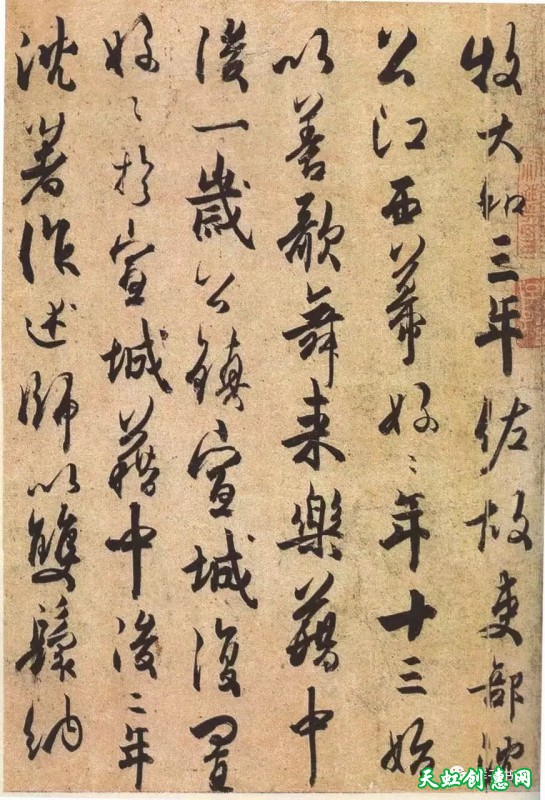 牧大和三年佐故吏部沈
公江西幕好〻年十三始
以善歌舞来樂籍中
後一歲公鎮宣城復置
好〻於宣城籍中後二年
沈著作述師以雙鬟納
天虹创意网